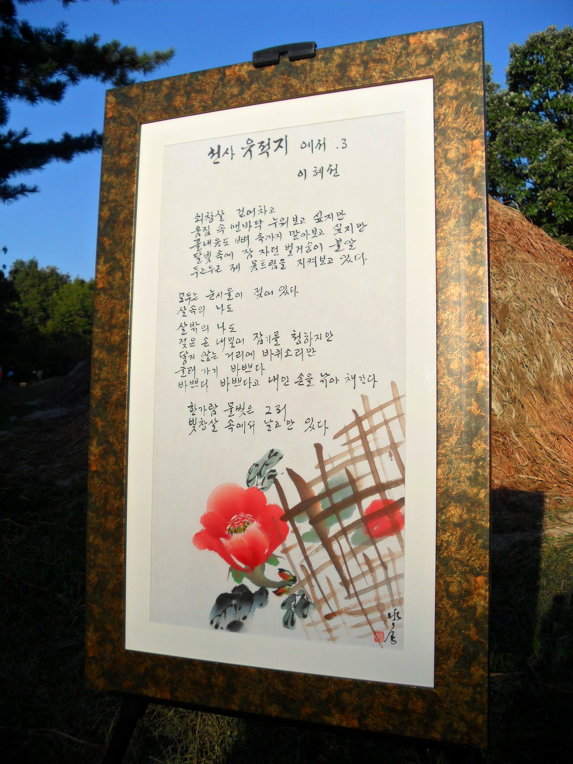 선사 유적지 에서 .3
이 혜선
쇠창살 걷어차고
움집 속 맨바닥 누워보고 싶지만
물내음도 뼈 속까지 맡아보고 싶지만
달빛 속에 잠 자던 벌거숭이 불알
두근두근 제 몸트림을 지켜보고 있다
모두는 눈시울이 젖어 있다
살속의 나도
살밖의 나도
젖은 손 내밀어 잡기를 청하지만
닿지 않는 거리에 바퀴소리만
굴러 가기 바쁘다
바쁘다 바쁘다고 내민 손을 뿌리 채간다
한가람 물빛은 그저
빛창살 속에서 날고만 있다